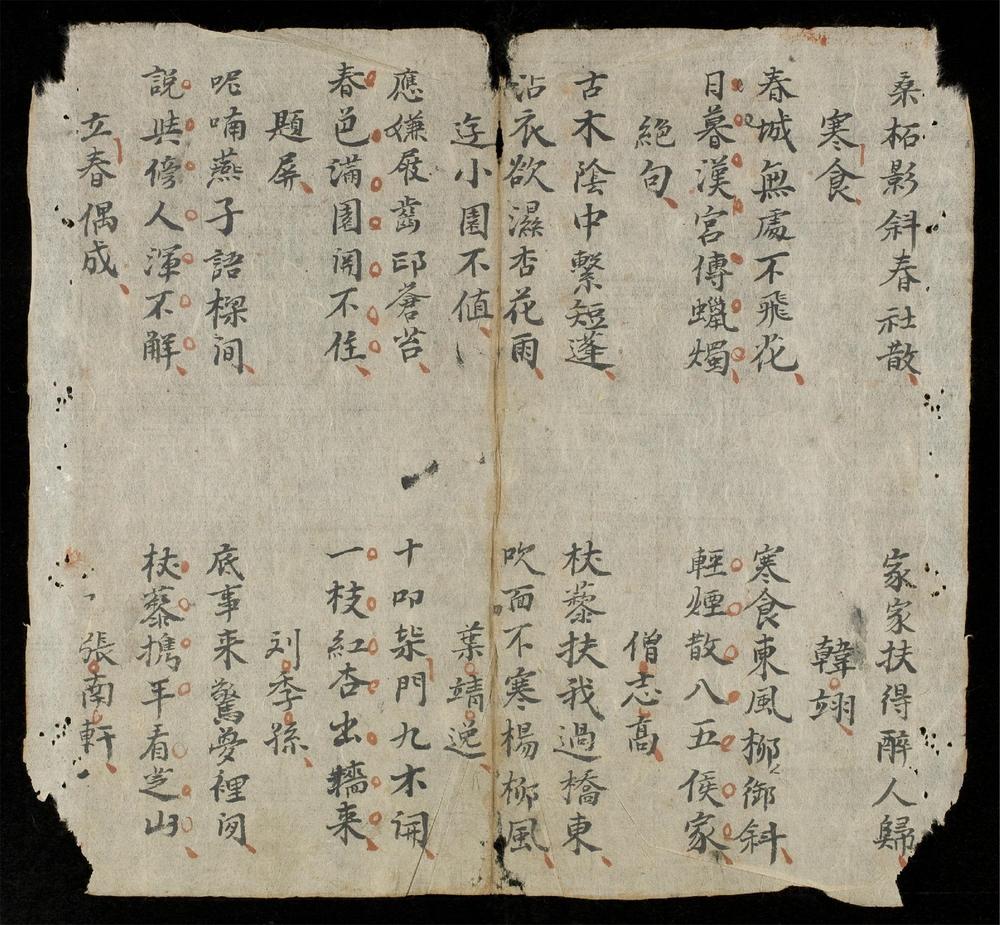 桑柘影斜春社散 家家扶得醉人歸
寒食 韓翊
春城無處不飛花 寒食東風柳御斜
日暮漢宮傳蠟燭 輕煙散八五侯家
絕句 僧志高
古木陰中繫短蓬 杖藜扶我過橋東
沾衣欲濕杏花雨 吹面不寒楊柳風
小園不值 葉靖逸
應嫌屐齒印蒼苔 十叩柴門九木開
春色滿園関不住 一枝紅杏出墻来
題屏 刘季孫
呢喃燕子語樑间 底事来驚夢裡间
說與傍人渾不解 杖藜携平看芝山
立春偶成 張南軒